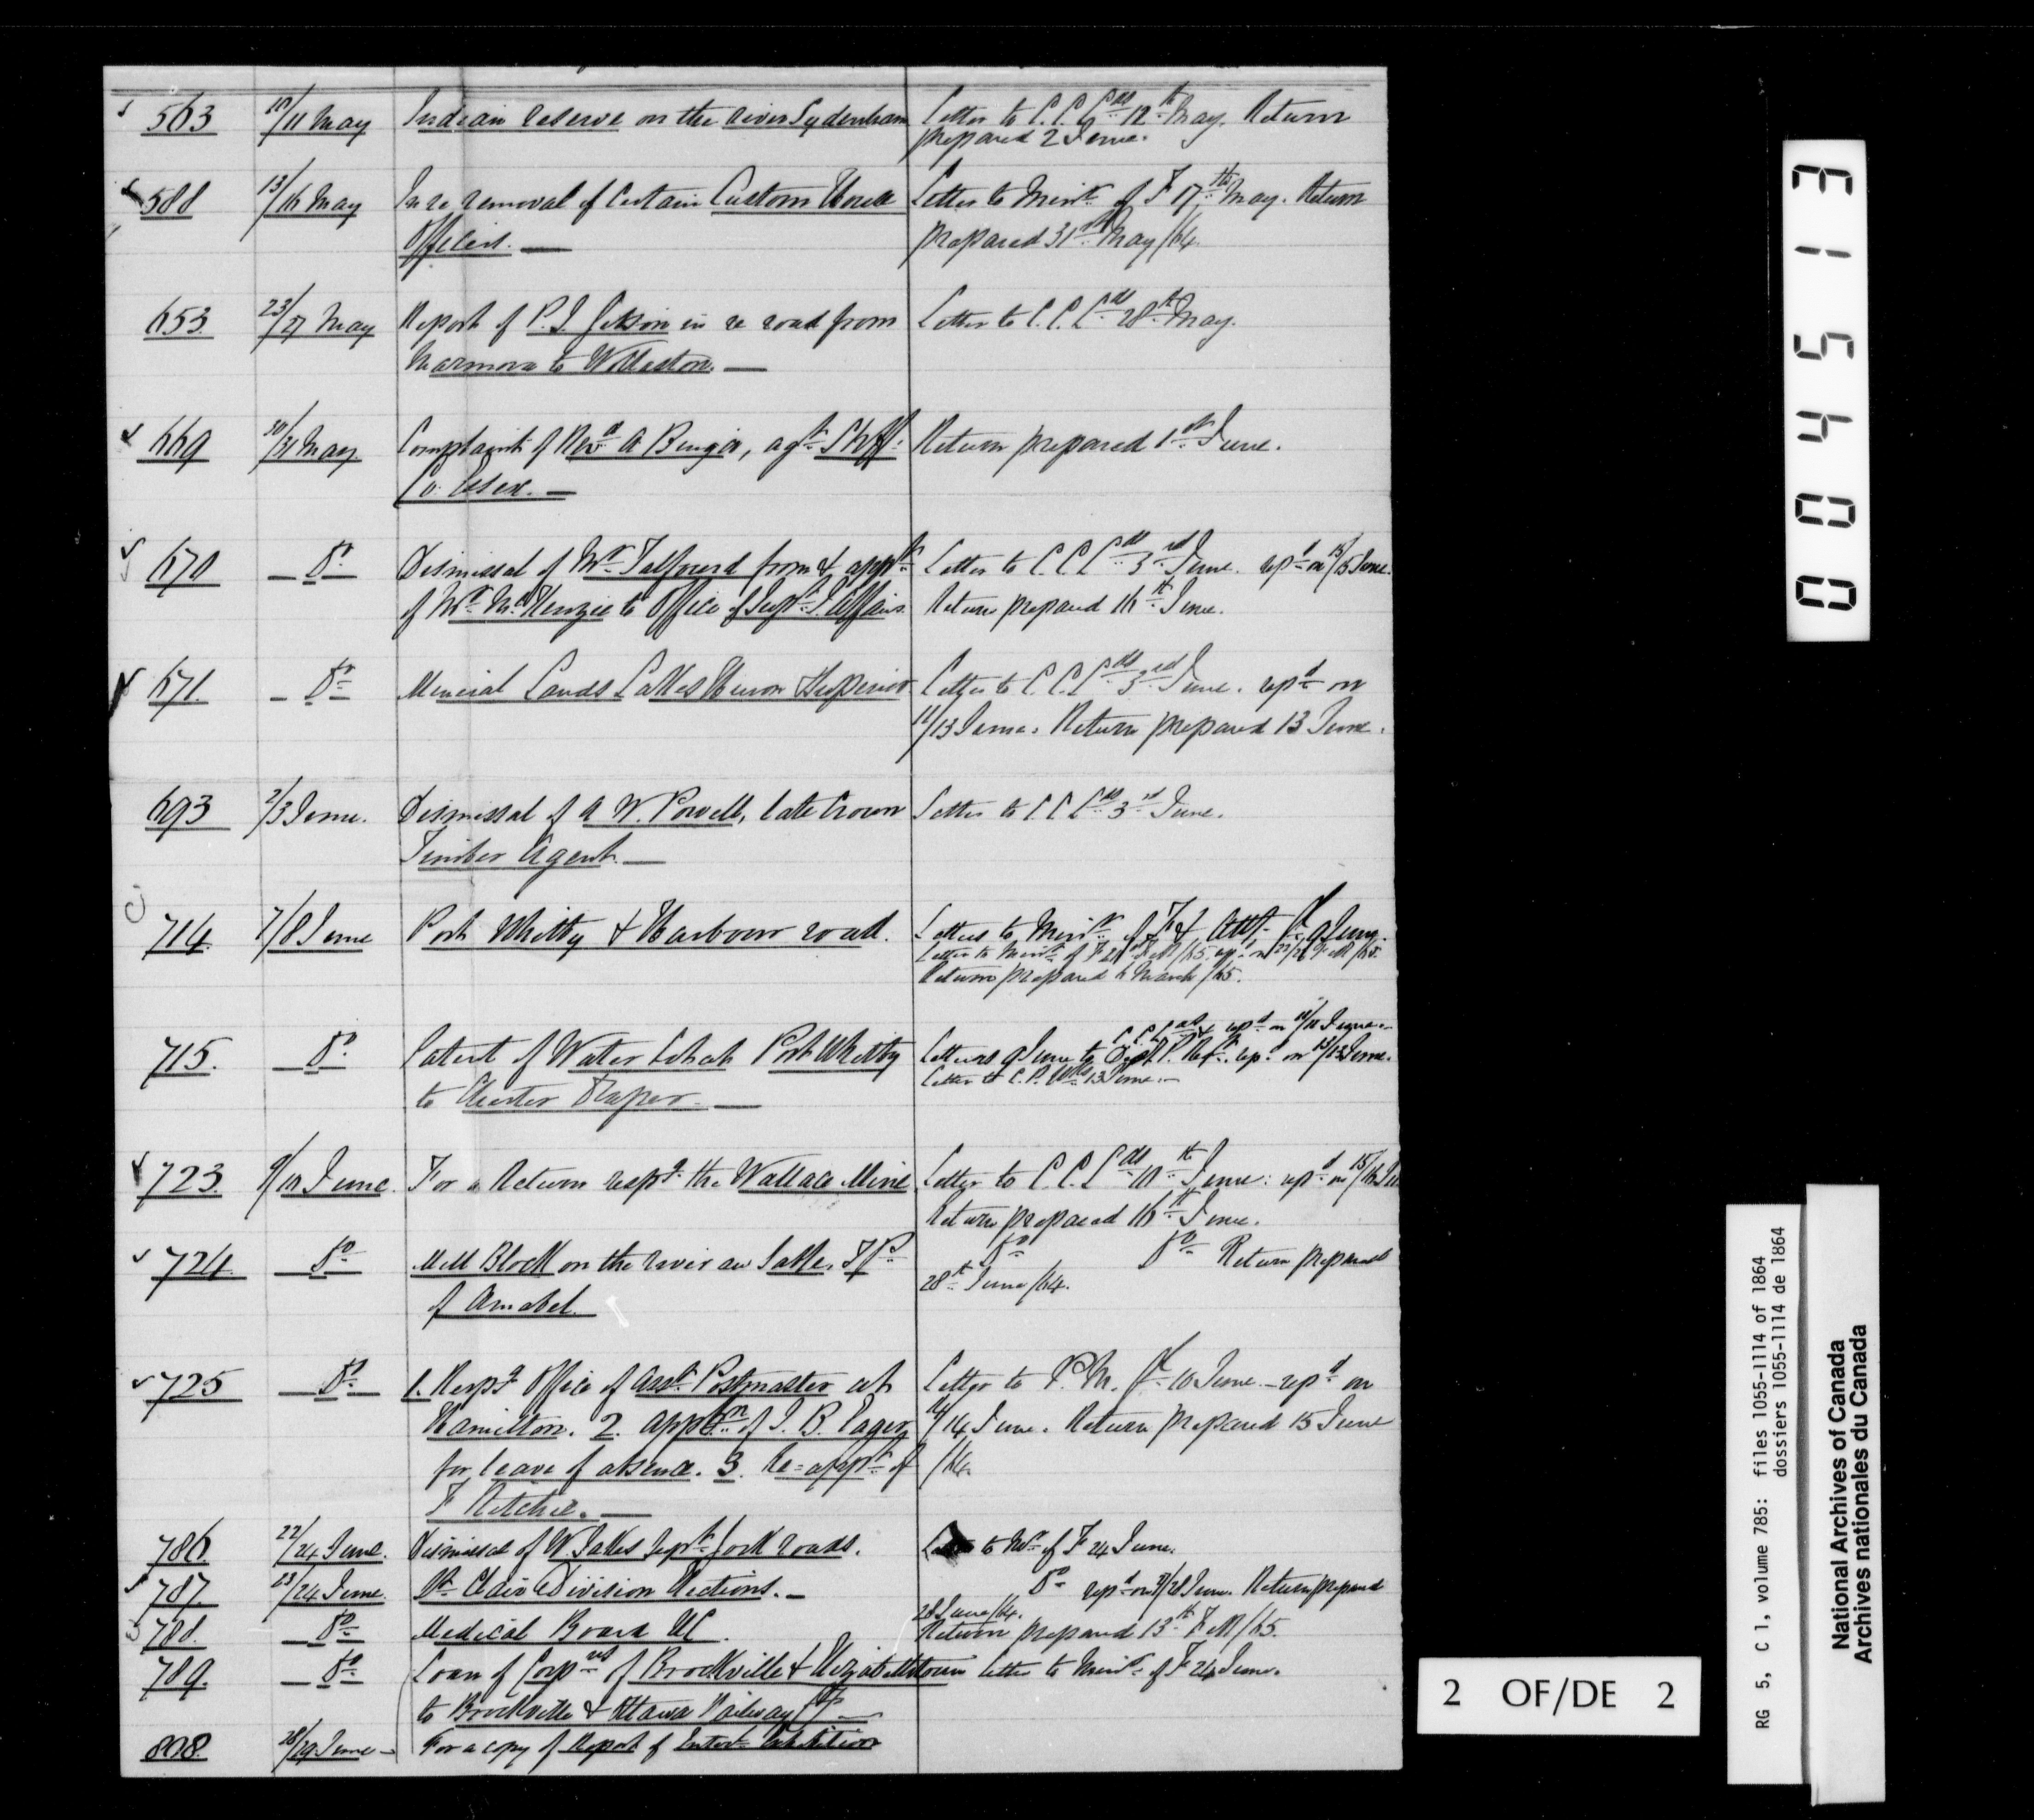 563 10/11 May Indian Reserve on the River Sydenham Letter to C.C.Lds 12th May. Return
prepared 2 June.
588 13/16 May In re removal of Certain Custom House Letter to Minr of F 17th May. Return
Officers. — prepared 31st May/64.
653 23/27 May Report of P.I. in re road from Letter to C.C.Lds 28th May.
Marmora to Wollaston. —
669 30/31 May Complaint of Revd A agst Shff: Return prepared 1st June.
Co. Essex. —
670 — Do Dismissal of Mr Talfourd from & appt Letter to C.C.Lds 3rd June. repd on 15/15 June.
of Mr McKenzie to Office of Supt I. Affairs. Return prepared 16th June.
671 — Do Mineral Lands Lakes Huron & Superior Letter to C.C.Lds 3rd June. repd on
11/13 June. Return prepared 13 June.
693 2/3 June. Dismissal of A W. Powell, late Crown Letter to C.C.Lds 3rd June.
Timber Agent. —
714. 7/8 June Port Whitby & Harbour road. Letters to Minr of F & 9 June.
Letter to Minr of F Feb/65. repd on 22/26 Feb/65.
Return prepared 6 March/65.
C.C.Lds & repd on 10/11 June.
715. — Do Patent of Water Lots at Port Whitby Letters 9 June to repd on 13/13 June.
to Chester Draper. — Letter to C.P. Wks 13 June. —
723. 9/10 June. For a Return respg the Wallace Mine Letter to C.C.Lds 10th June: repd on 15/16 Ju
Return prepared 16th June.
724. — Do Mill Block on the river au Sable, TP Do Do Return prepared
of Amabel. 28th June/64.
725 — Do 1. Respg Office of Asst Postmaster at Letter to P.M. Gl 10 June — repd on
Hamilton. 2. Apptn of I. B. Eager 11/14 June. Return prepared 15 June
for leave of absence. 3. Re=appt of /64.
F Ritchie. —
786 22/24 June. Dismissal of W. Supt York roads. Letter to Mr of F 24 June.
787. 23/24 June. St Clair Division Elections. — Do repd on 27/28 June. Return prepared
28 June/64.
788. — Do Medical Board UC. Return prepared 13th Feb/65.
789. — Do Loan of Corpns of Brockville & Elizabethtown Letter to Minr of F 24 June.
to Brockville & Ottawa Railway Co —
808. 28/29 June — For a copy of Report of Exhibition
004513
2 OF/DE 2
RG 5, C 1, volume 785: files 1055-1114 of 1864
dossiers 1055-1114 de 1864
National Archives of Canada
Archives nationales du Canada